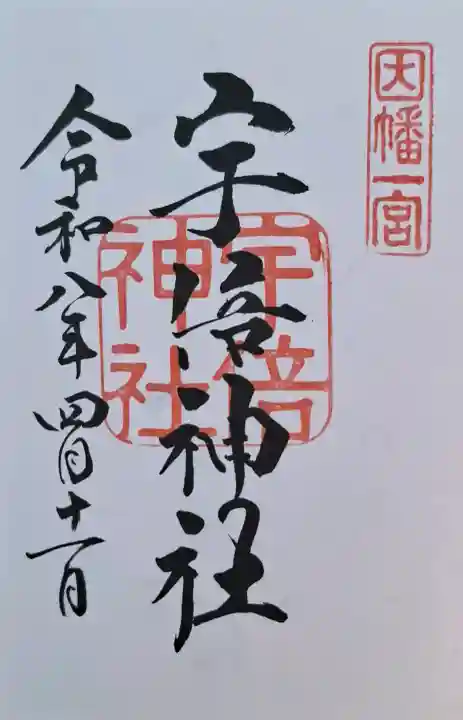 因幡一宮
宇倍神社
宇倍
神社
令和八年四月十一日